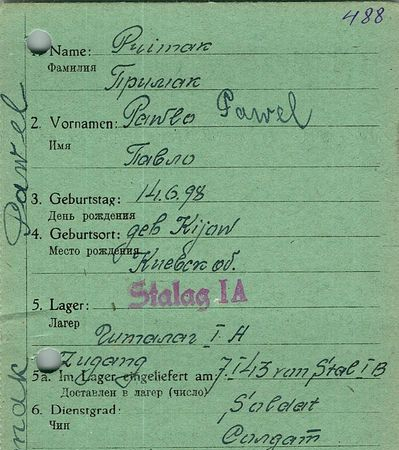 488
1. Name: Priimak
Фамилия
Приімак
2. Vornamen: Pawlo Pawel
Имя
Павло
3. Geburtstag: 14.6.98
День рождения
4. Geburtsort: geb Kijow
Место рождения
Киевск об.
Stalag IA
5. Lager:
Лагер
Шталаг I A
Zugang
5a. Im Lager eingeliefert am 7.I.43 von Stal I B
Доставлен в лагер (число)
6. Dienstgrad: Soldat
Чин
Солдат
Pawel